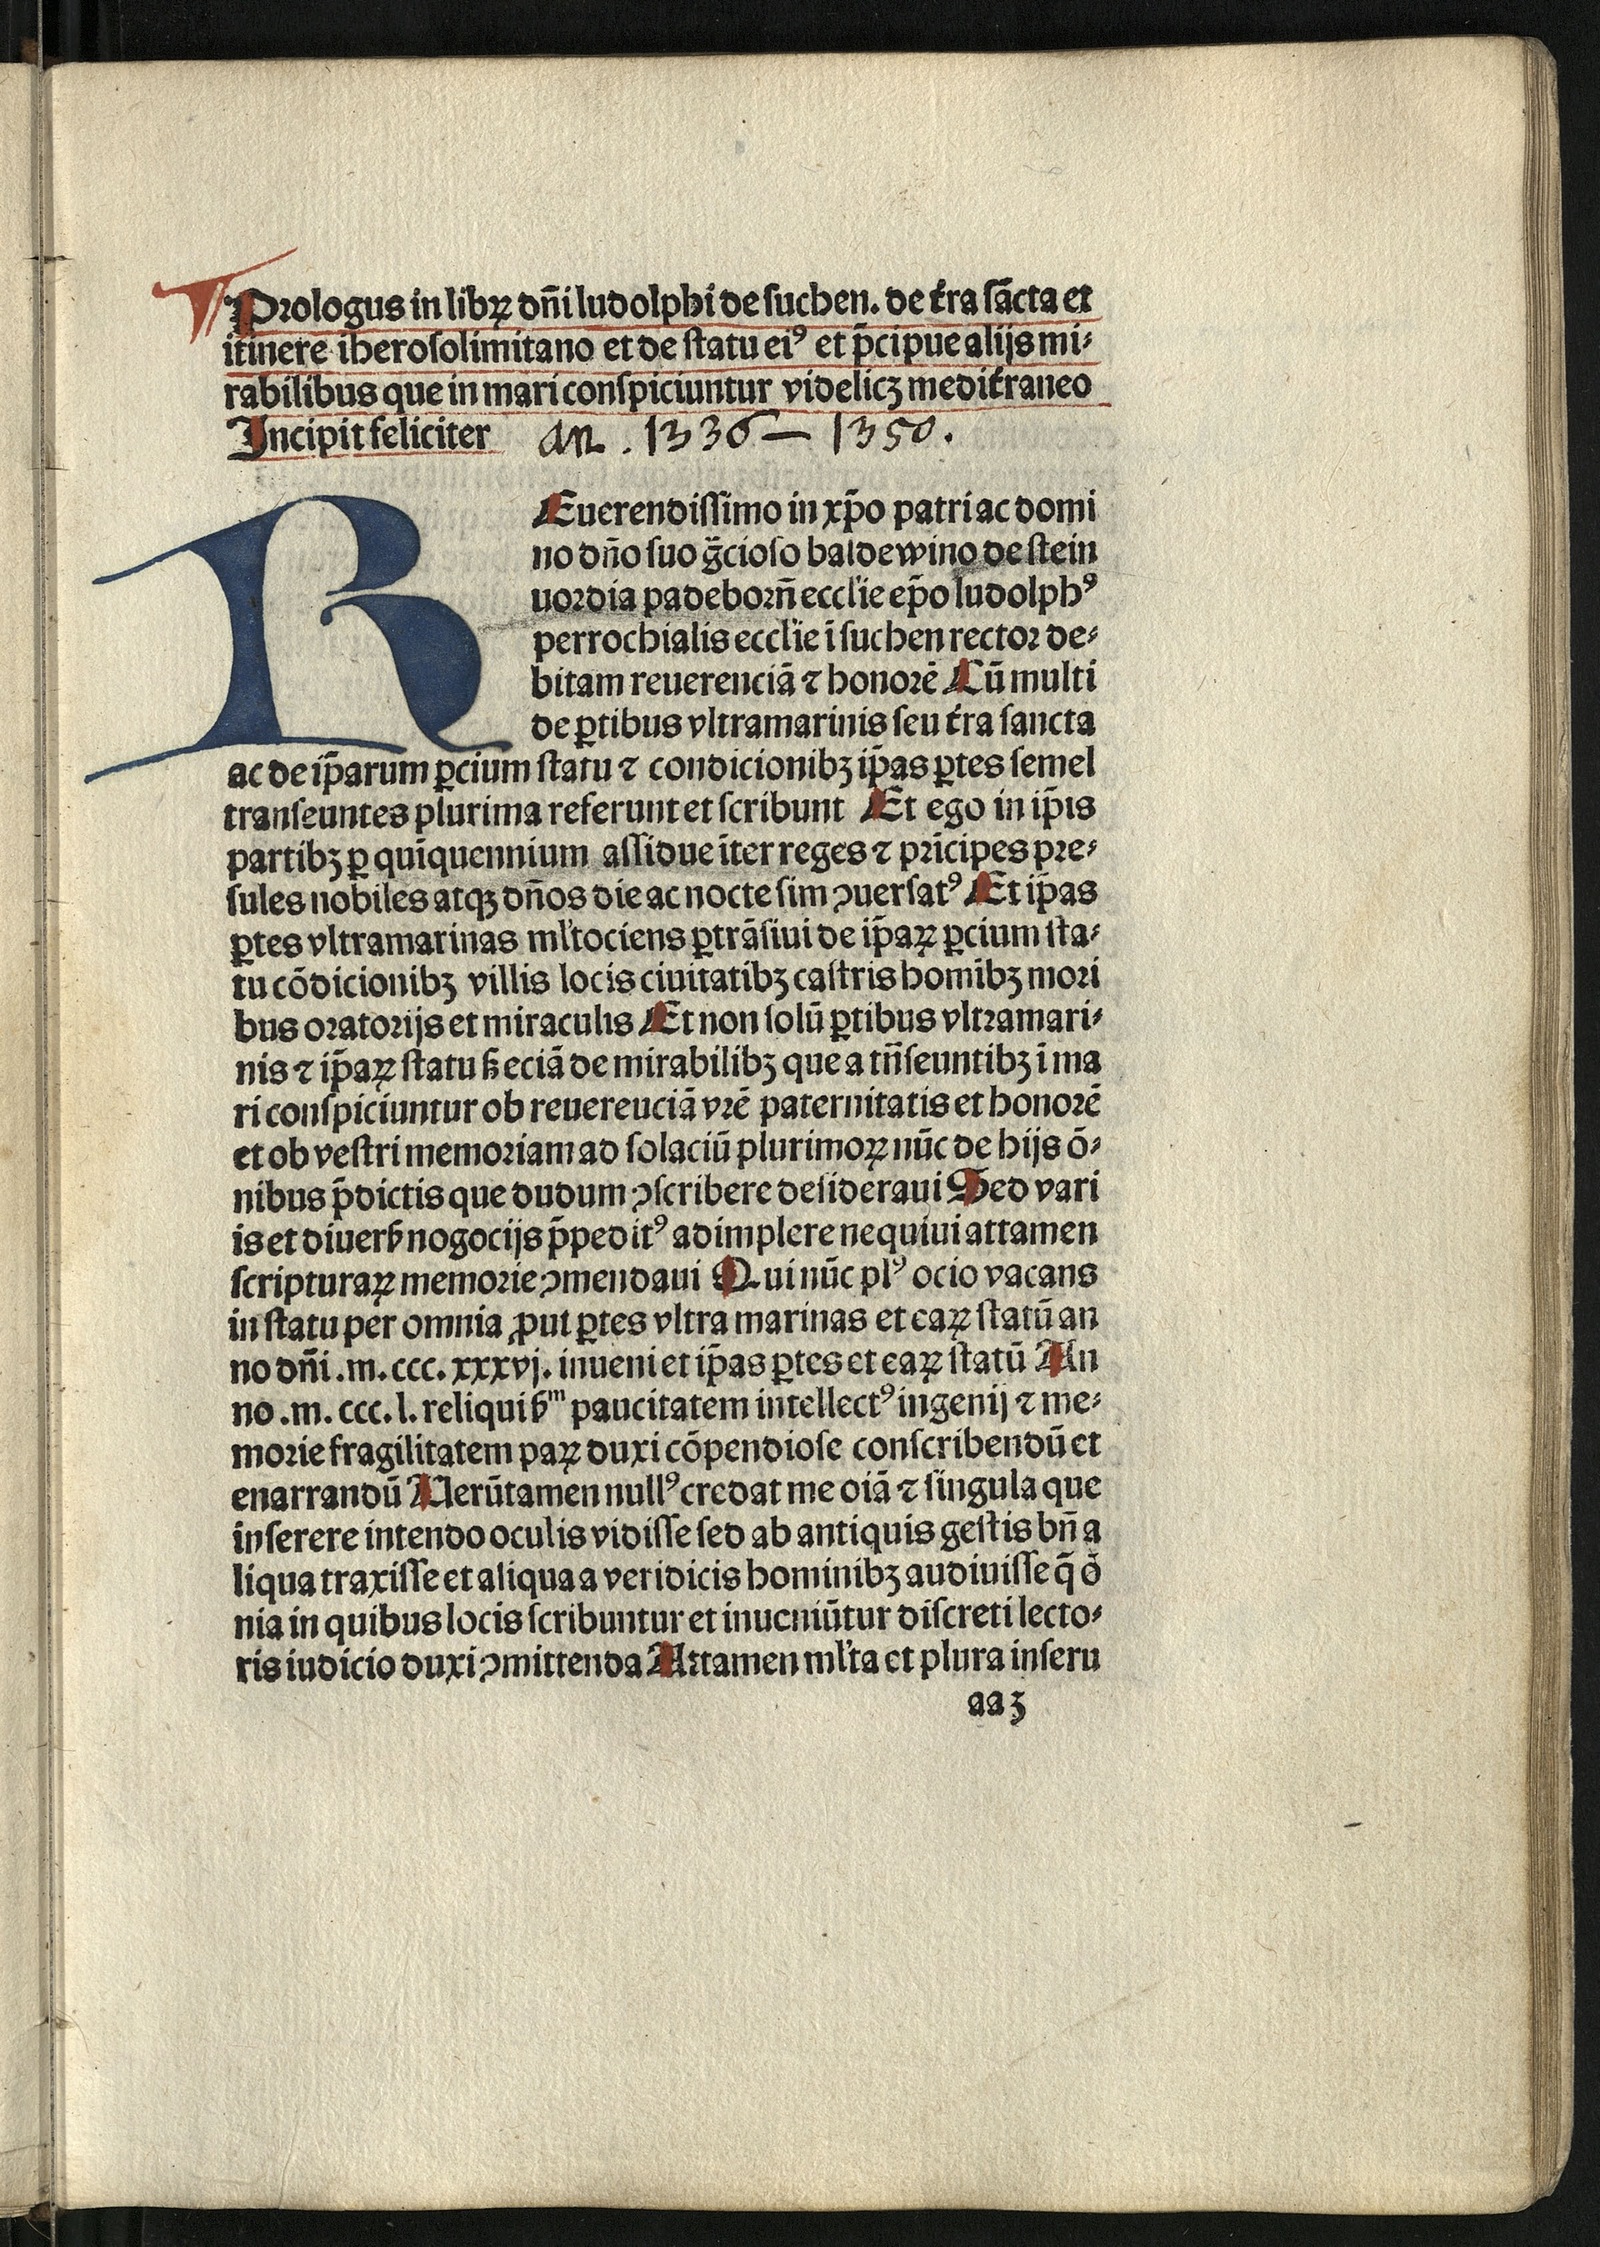 Prologus in libꝝ dn̄i ludolphi de suchen. de t̄ra sācta et
itinere iherosolimitano et de statu eiꝰ et p̄cipue alijs mi⸗
rabilibus que in mari conspiciuntur videlicꝫ medit̄raneo
Incipit feliciter an . 1336 — 1350.
REuerendissimo in xp̄o patri ac domi
no dn̄o suo ḡcioso baldewino de stein
uordia padeborn̄ eccl'ie ep̄o ludolphꝰ
perrochialis eccl'ie ī suchen rector de⸗
bitam reuerenciā ⁊ honorē Cū multi
de ꝑtibus vltramarinis seu t̄ra sancta
ac de ip̄arum ꝑcium statu ⁊ condicionibꝫ ip̄as ꝑtes semel
transeuntes plurima referunt et scribunt Et ego in ip̄is
partibꝫ ꝑ quīquennium assidue īter reges ⁊ prīcipes pre⸗
sules nobiles atqꝫ dn̄os die ac nocte sim ꝯuersatꝰ Et ip̄as
ꝑtes vltramarinas ml'tociens ꝑtrāsiui de ip̄aꝝ ꝑcium sta⸗
tu cōdicionibꝫ villis locis ciuitatibꝫ castris homībꝫ mori
bus oratorijs et miraculis Et non solū ꝑtibus vltramari⸗
nis ⁊ ip̄aꝝ statu ẜ eciā de mirabilibꝫ que a tn̄seuntibꝫ ī ma
ri conspiciuntur ob reuereuciā vrē paternitatis et honorē
et ob vestri memoriam ad solaciū plurimoꝝ nūc de hijs ō⸗
nibus p̄dictis que dudum ꝯscribere desideraui Sed vari
is et diuerẜ nogocijs p̄peditꝰ adimplere nequiui attamen
scripturaꝝ memorie ꝯmendaui Qui nūc plꝰ ocio vacans
in statu per omnia ꝓut ꝑtes vltra marinas et eaꝝ statū an
no dn̄i .m. ccc. xxxvj. inueni et ip̄as ꝑtes et eaꝝ statū An
no .m. ccc. l. reliqui ẜᵐ paucitatem intellectꝰ ingenij ⁊ me⸗
morie fragilitatem paꝝ duxi cōpendiose conscribendū et
enarrandū Uerūtamen nullꝰ credat me oīa ⁊ singula que
inserere intendo oculis vidisse sed ab antiquis gestis bn̄ a
liqua traxisse et aliqua a veridicis hominibꝫ audiuisse q̄ ō
nia in quibus locis scribuntur et inueniūtur discreti lecto⸗
ris iudicio duxi ꝯmittenda Attamen ml'ta et plura inseru
aa3